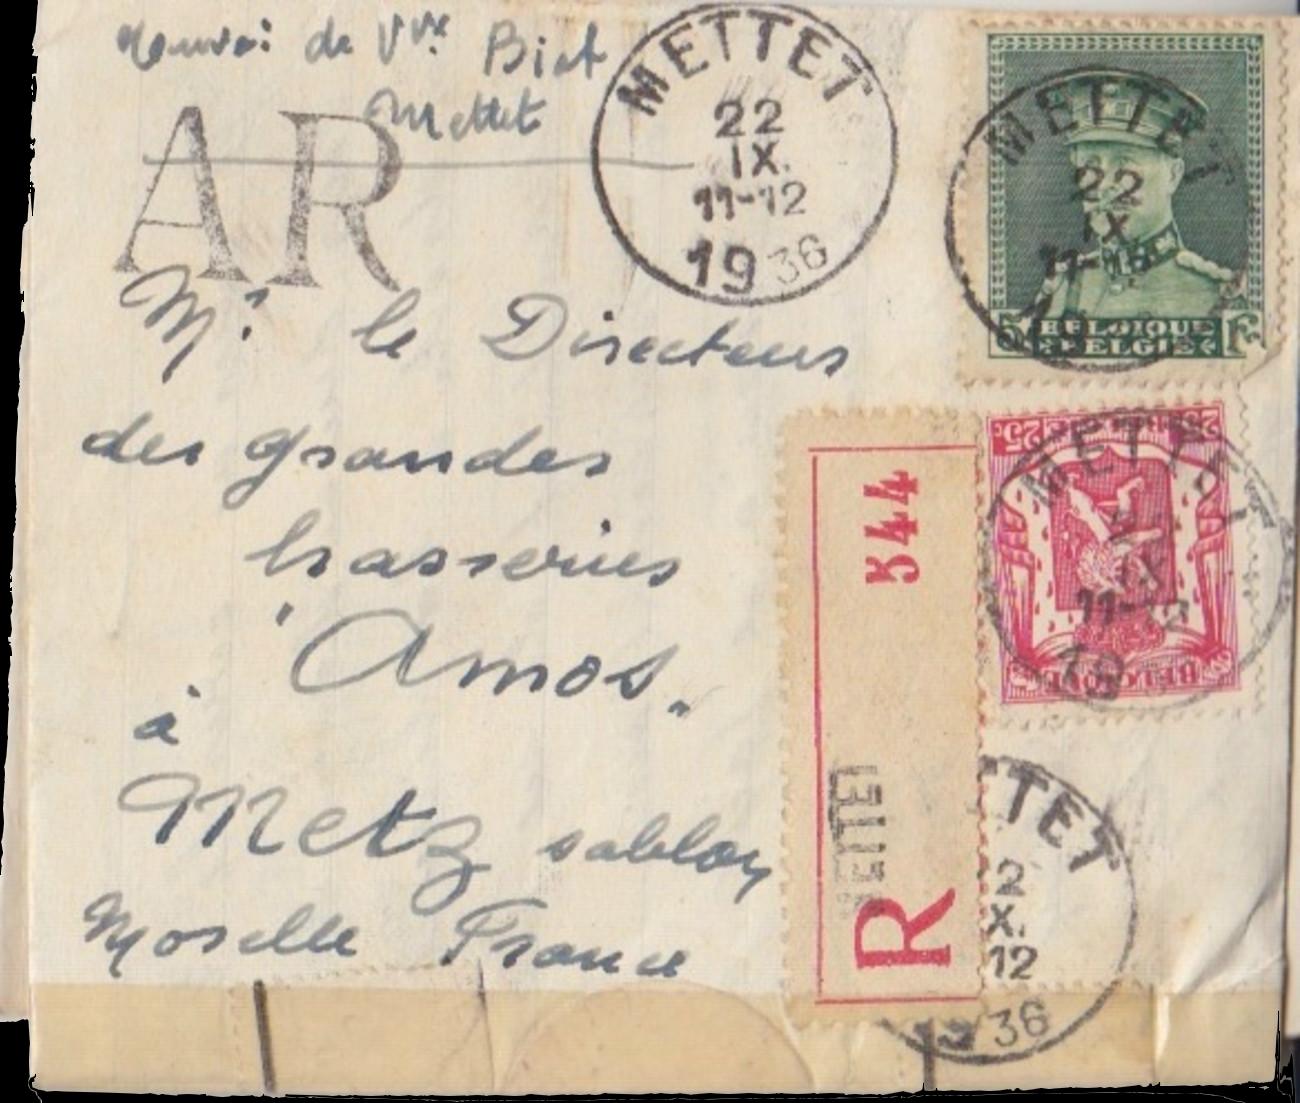 de Vve Biot
Mettet
AR
METTET
22
IX.
11-12
1936
METTET
22
IX
11-12
19
5 BELGIQUE Fr
BELGIE
Mr. le Directeur
des grandes
brasseries
"Amos"
à
Metz sablon
Moselle France
344
METTET
R
25c BELGIE 25c
BELGIQUE
METTET
IX
11-12
19
TTET
2
X.
12
36